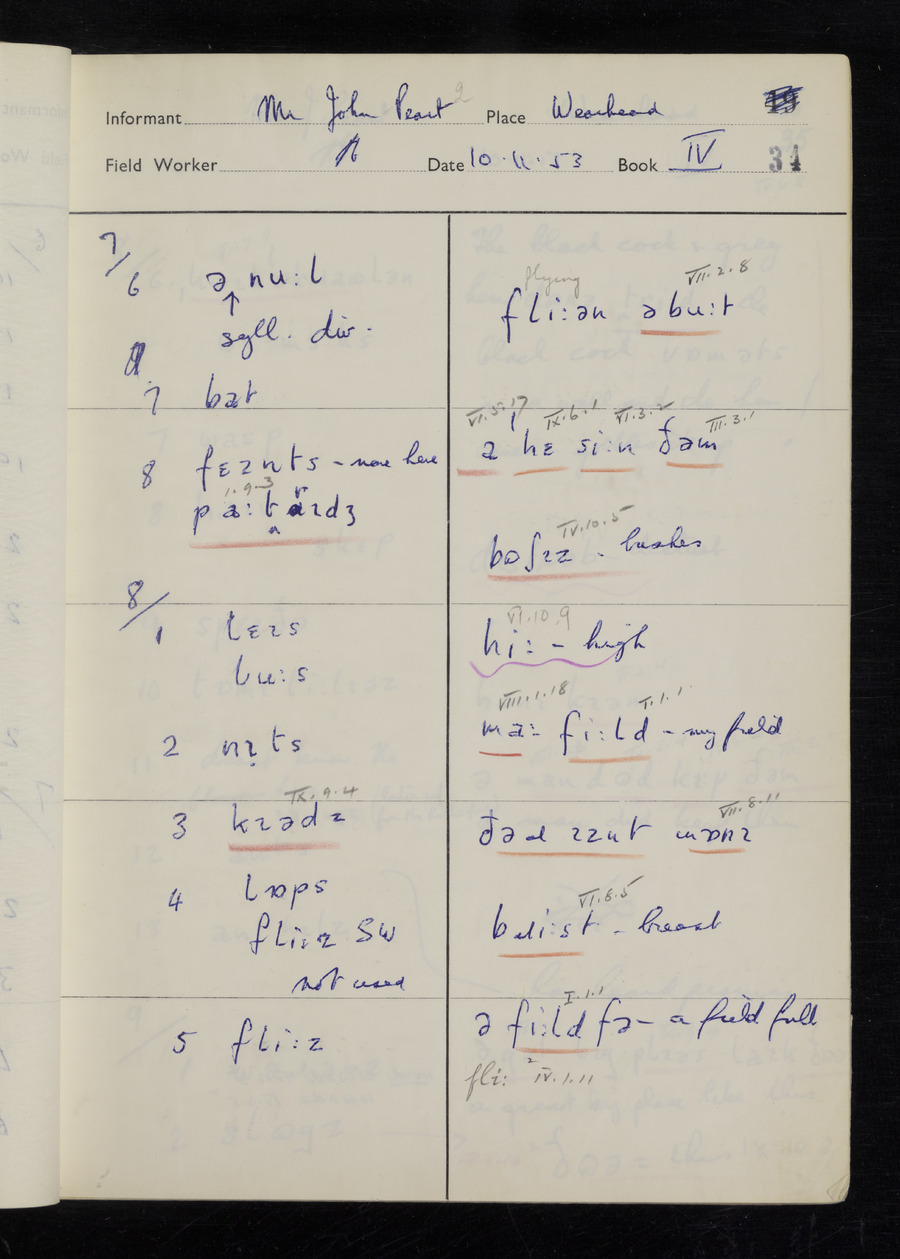 Informant Mr John Peart 2 Place Wearhead
Field Worker Date 10.11.53 Book IV 34
7/
6 ə nu:l
↑
syll. div.
7 bat
8 fɛznts - now here
I.9.3
8/
1 lɛɪs
lu:s
2 nɪts
IX.9.4
3
4 lɒps
fli:z SW
not used
5 fli:z
flying VII.2.8
fli:ən əbu:t
VI.5.17 IX.6.1 VI.3.2 III.3.1
a hɛ si:n ðəm
IV.10.5
boʃɪz - bushes
VI.10.9
hi: - high
VIII.1.18 I.1.1
ma: fi:ld - my field
VII.8.11
VI.8.5
- breast
I.1.1
ə fi:ld fə - a field full
fli: 2 IV.1.11